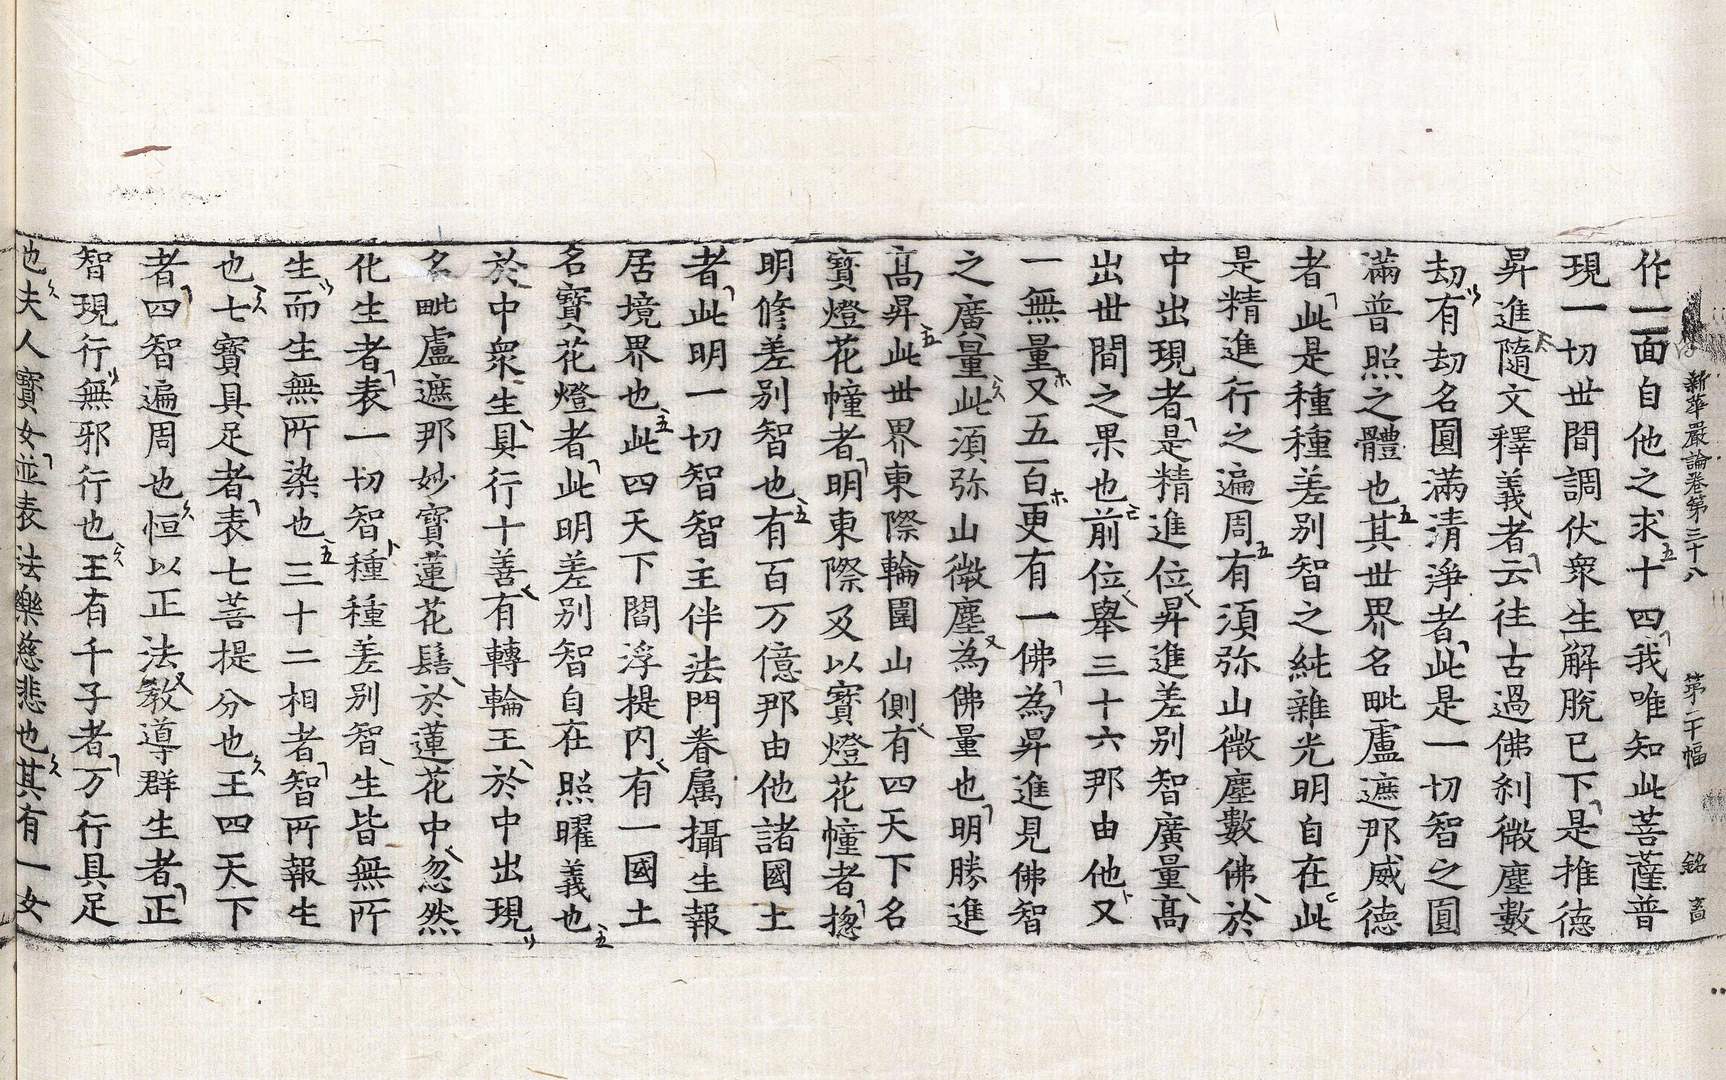 新華嚴論卷第三十八　第二十幅　銘　啇
作一面自他之求十四我唯知此菩薩普
現一切世間調伏衆生解脫已下是推德
昇進隨文釋義者云往古過佛刹微塵數
劫有劫名圓滿清淨者此是一切智之圓
滿普照之體也其世界名毗盧遮那威德
者此是種種差别智之純雜光明自在此
是精進行之遍周有須弥山微塵數佛於
中出現者是精進位昇進差别智廣量髙
出世間之果也前位舉三十六那由他又
一無量又五百更有一佛為昇進見佛智
之廣量此須弥山微塵為佛量也明勝進
髙昇此世界東際輪圍山側有四天下名
寳燈花幢者明東際及以寳燈花幢者揔
明修差别智也有百万億那由他諸國土
者此明一切智智主伴法門眷属攝生報
居境界也此四天下閻浮提内有一國土
名寳花燈者此明差别智自在照曜義也
於中衆生具行十善有轉輪王於中出現
名毗盧遮那妙寳蓮花髻於蓮花中忽然
化生者表一切智種種差别智生皆無所
生而生無所染也三十二相者智所報生
也七寳具足者表七菩提分也王四天下
者四智遍周也恒以正法教導群生者正
智現行無邪行也王有千子者万行具足
也夫人寳女並表法樂慈悲也其有一女